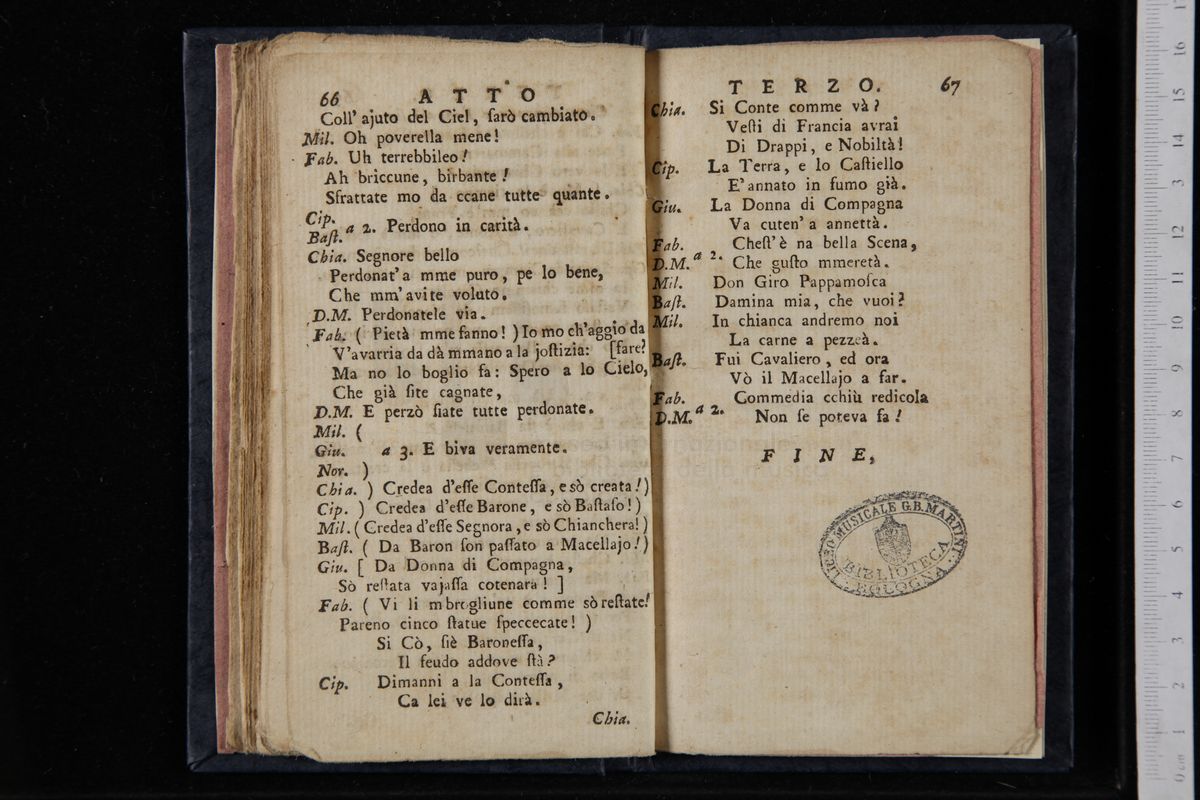 66 ATTO
Coll' ajuto del Ciel, ſarò cambiato.
Mil. Oh poverella mene!
Fab. Uh terrebbileo!
Ah briccune, birbante!
Sfrattate mo da ccane tutte quante.
Cip.
Baſt. a 2. Perdono in carità.
Chia. Segnore bello
Perdonat'a mme puro, pe lo bene,
Che mm'avite voluto.
D.M. Perdonatele via.
Fab. ( Pietà mme fanno! ) Io mo ch'aggio da
V'avarria da dà mmano a la joſtizia: [fare?
Ma no lo boglio fa: Spero a lo Cielo,
Che già ſite cagnate,
D.M. E perzò ſiate tutte perdonate.
Mil. (
Giu. a 3. E biva veramente.
Nor. )
Chia. ) Credea d'eſſe Conteſſa, e sò creata!)
Cip. ) Credea d'eſſe Barone, e sò Baſtaſo!)
Mil. ( Credea d'eſſe Segnora, e sò Chianchera!)
Baſt. ( Da Baron ſon paſſato a Macellajo!)
Giu. [ Da Donna di Compagna,
Sò reſtata vajaſſa cotenara! ]
Fab. ( Vi li mbrogliune comme sò reſtate!
Pareno cinco ſtatue ſpeccecate! )
Si Cò, ſiè Baroneſſa,
Il feudo addove ſtà?
Cip. Dimanni a la Conteſſa,
Ca lei ve lo dirà.
Chia.
TERZO. 67
Chia. Si Conte comme và?
Veſti di Francia avrai
Di Drappi, e Nobiltà!
Cip. La Terra, e lo Caſtiello
E' annato in fumo già.
Giu. La Donna di Compagna
Va cuten' a annettà.
Fab. Cheſt' è na bella Scena,
D.M. a 2. Che guſto mmeretà.
Mil. Don Giro Pappamoſca
Baſt. Damina mia, che vuoi?
Mil. In chianca andremo noi
La carne a pezzeà.
Baſt. Fui Cavaliero, ed ora
Vò il Macellajo a far.
Fab. Commedia cchiù redicola
D.M. a 2. Non ſe poteva fa!
FINE,
LICEO MUSICALE G.B. MARTINI
BIBLIOTECA
BOLOGNA